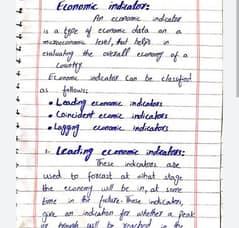 Economic indicators:
An economic indicator
is a type of economic data on a
macroeconomic level, that helps in
evaluating the overall economy of a
Country.
Economic indicator can be classified
as follows;
• Leading economic indicators
• Coincident economic indicators
• Lagging economic indicators
1. Leading economic indicators:
These indicators are
used to forecast at what stage
the economy will be in, at some
time in the future. These indicators,
give an indication for whether a peak
or trough will be reached in the